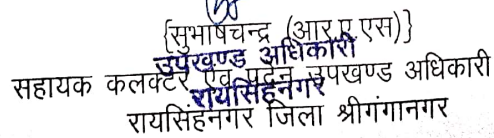 {सुभाषचन्द्र (आर ए एस)}
उपखण्ड अधिकारी
सहायक कलक्टर एवं पदेन उपखण्ड अधिकारी
रायसिंहनगर
रायसिंहनगर जिला श्रीगंगानगर